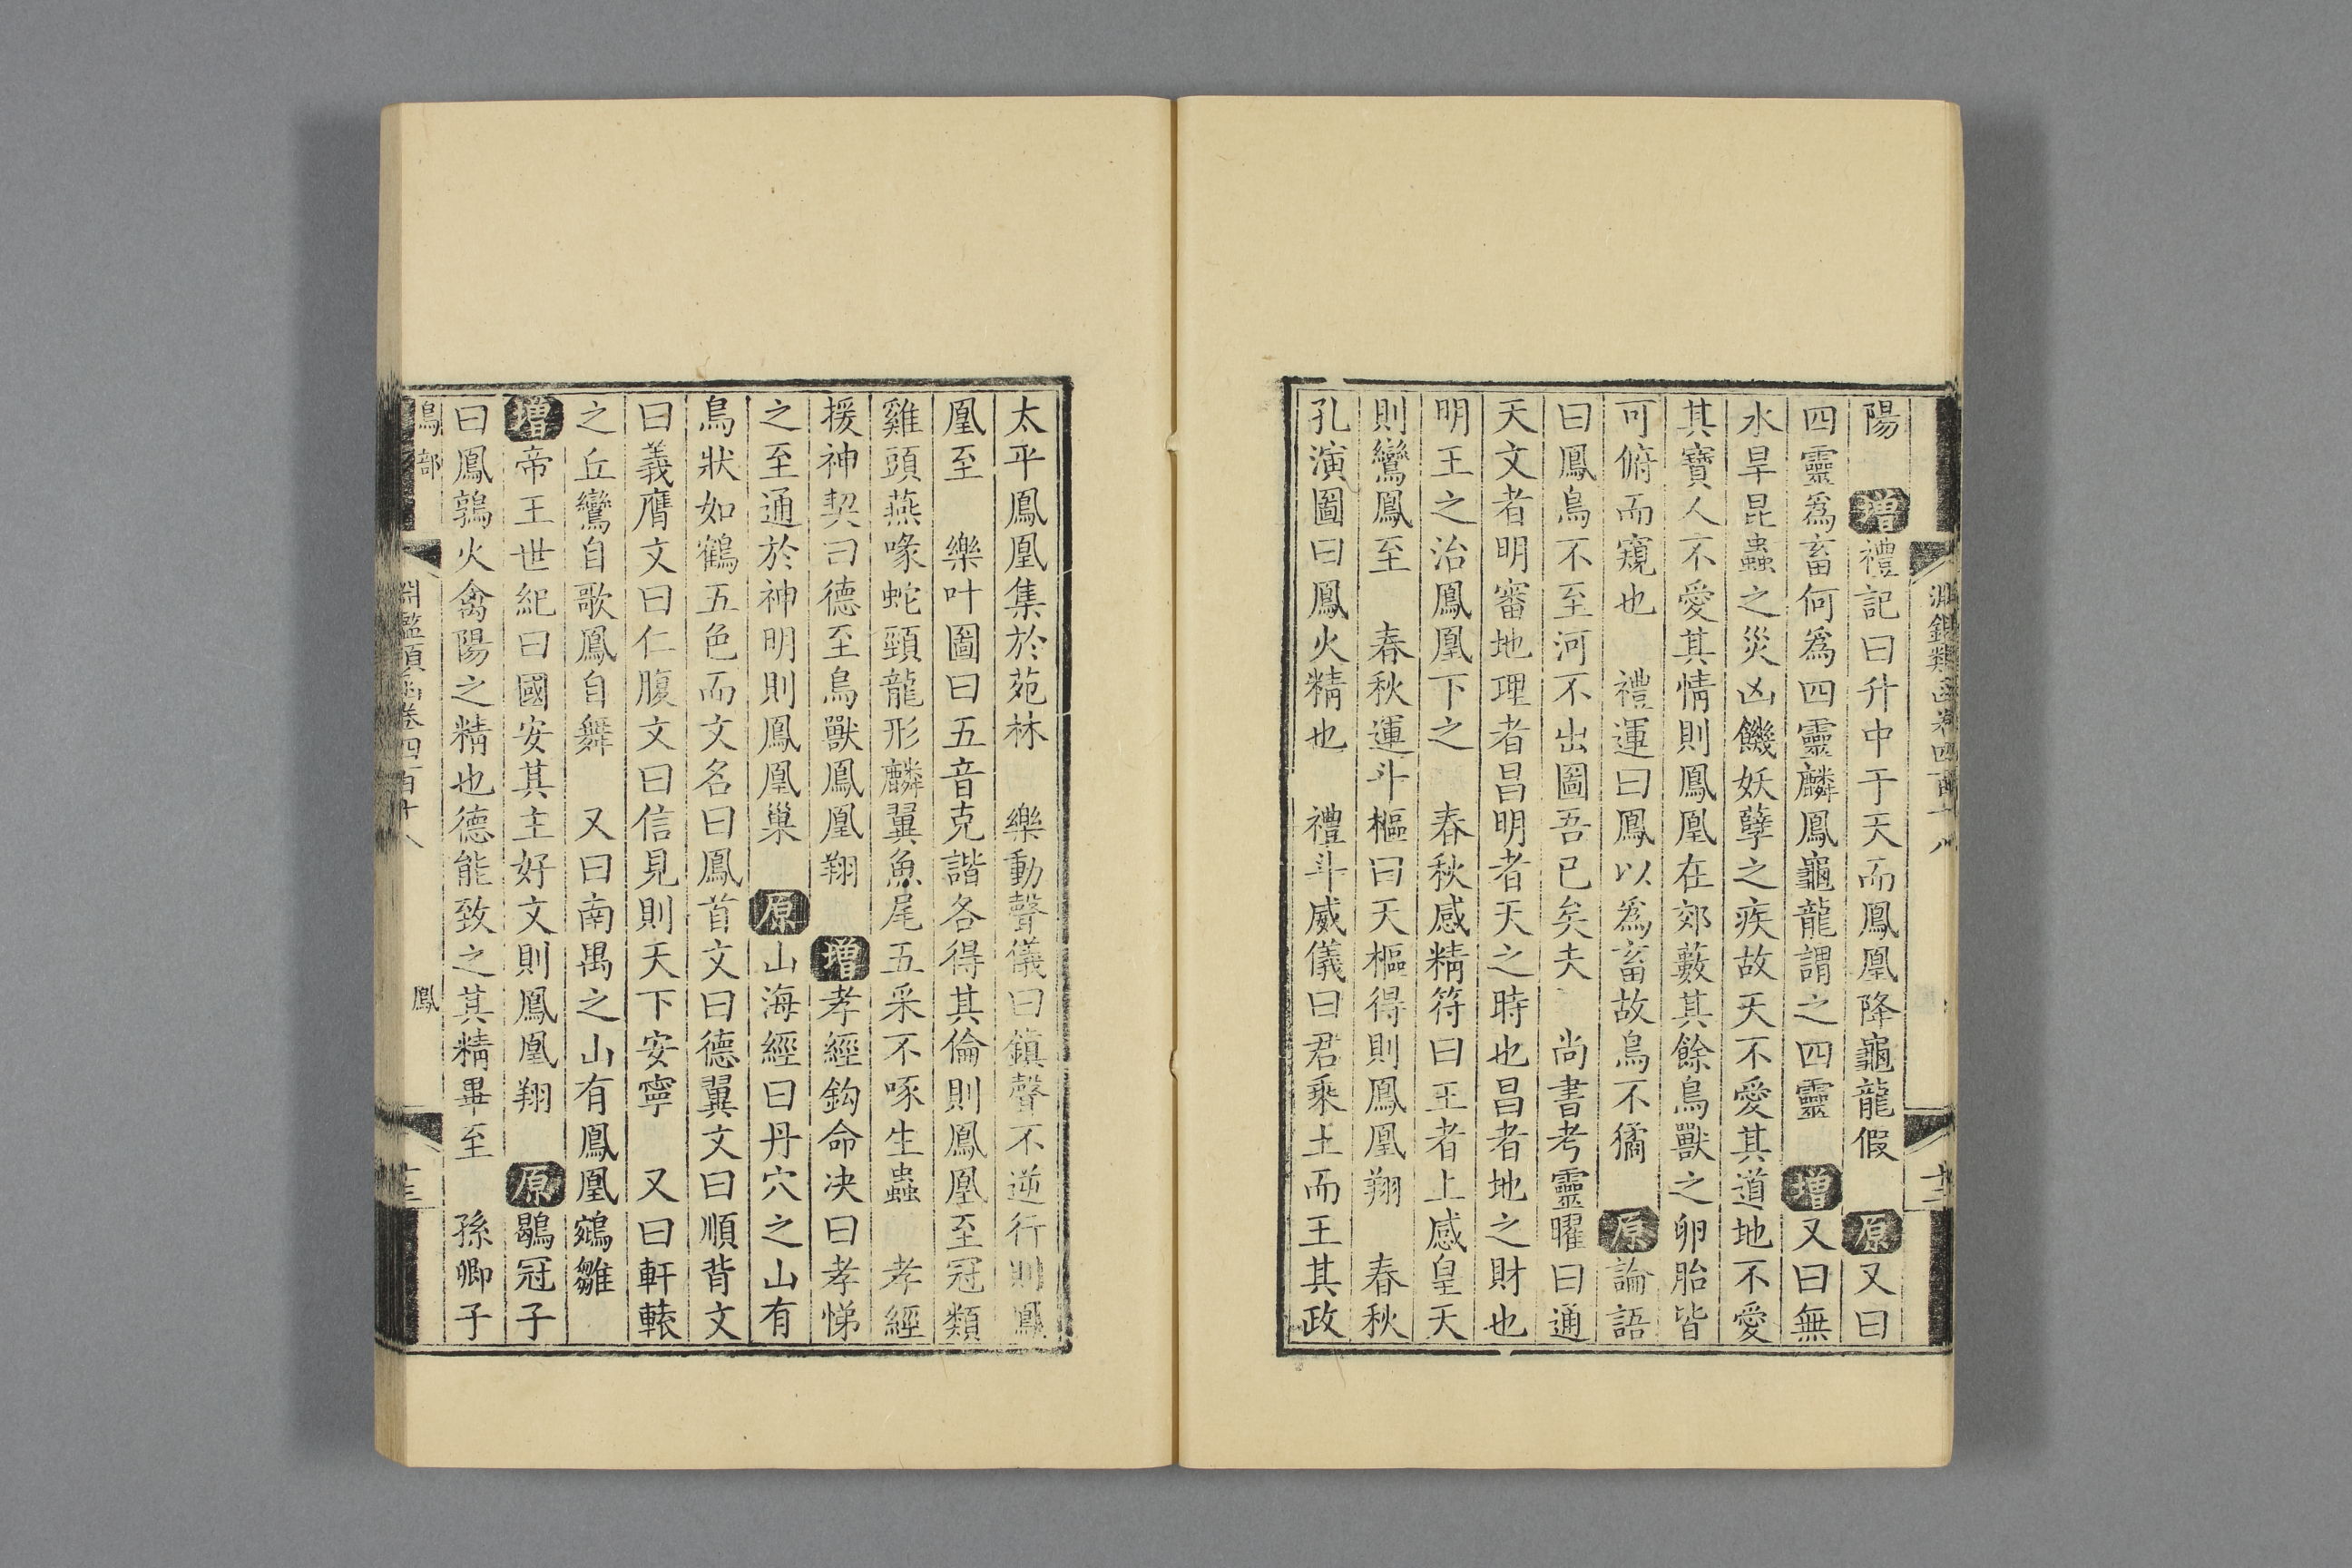 陽　增禮記曰升中于天而鳳凰降龜龍假　原又曰
四靈爲畜何爲四靈麟鳳龜龍謂之四靈　增又曰無
水旱昆蟲之災凶饑妖孽之疾故天不愛其道地不愛
其寶人不愛其情則鳳凰在郊藪其餘鳥獸之卵胎皆
可俯而窺也　禮運曰鳳以爲畜故鳥不獝　原論語
曰鳳鳥不至河不出圖吾已矣夫　尚書考靈曜曰通
天文者明審地理者昌明者天之時也昌者地之財也
明王之治鳳凰下之　春秋感精符曰王者上感皇天
則鸞鳳至　春秋運斗樞曰天樞得則鳳凰翔　春秋
孔演圖曰鳳火精也　禮斗威儀曰君乘土而王其政
太平鳳凰集於苑林　樂動聲儀曰鎮聲不逆行則鳳
凰至　樂叶圖曰五音克諧各得其倫則鳳凰至冠類
雞頭燕喙蛇頸龍形麟翼魚尾五采不啄生蟲　孝經
援神契曰德至鳥獸鳳凰翔　增孝經鈎命决曰孝悌
之至通於神明則鳳凰巢　原山海經曰丹穴之山有
鳥狀如鶴五色而文名曰鳳首文曰德翼文曰順背文
曰義膺文曰仁腹文曰信見則天下安寧　又曰軒轅
之丘鸞自歌鳳自舞　又曰南禺之山有鳳凰鵷雛
增帝王世紀曰國安其主好文則鳳凰翔　原鶡冠子
曰鳳鶉火禽陽之精也德能致之其精畢至　孫卿子
鳥部　淵鑑類函卷四百十八　鳳　十三